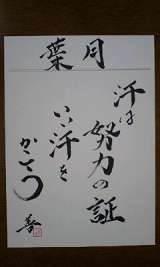 葉月
汗は
努力の証
いい汗を
かこう